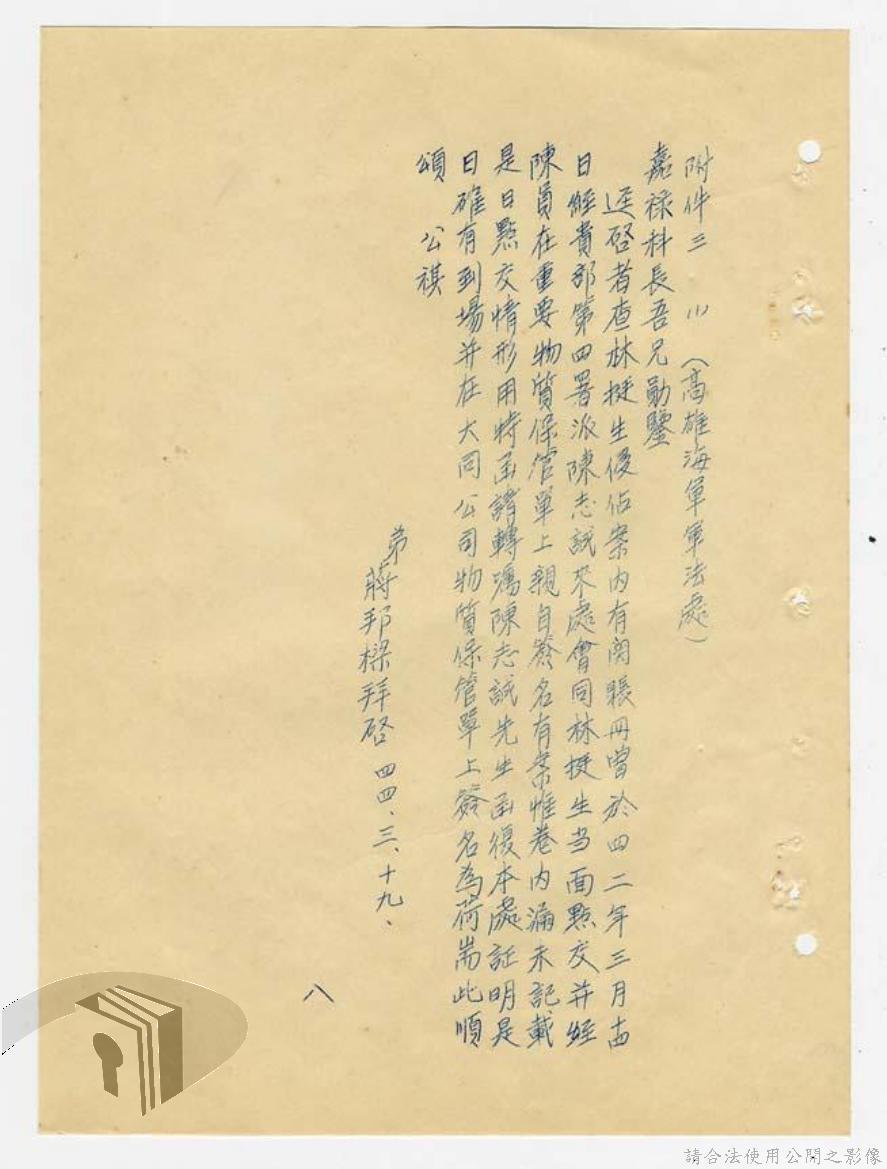 附件三 (1)(高雄海軍軍法處)
嘉祿科長吾兄勛鑒
逕啓者查林挺生侵佔案內有関賬冊曾於四二年三月十四
日經貴部第四署派陳志誠來處會同林挺生当面點交并經
陳員在重要物質保管單上親自簽名有案惟卷內漏未記載
是日點交情形用特函請轉囑陳志誠先生函復本處証明是
日確有到場并在大同公司物質保管單上簽名為荷耑此順
頌 公祺
弟
蔣邦樑拜啓 四四、三、十九、
八
請合法使用公開之影像